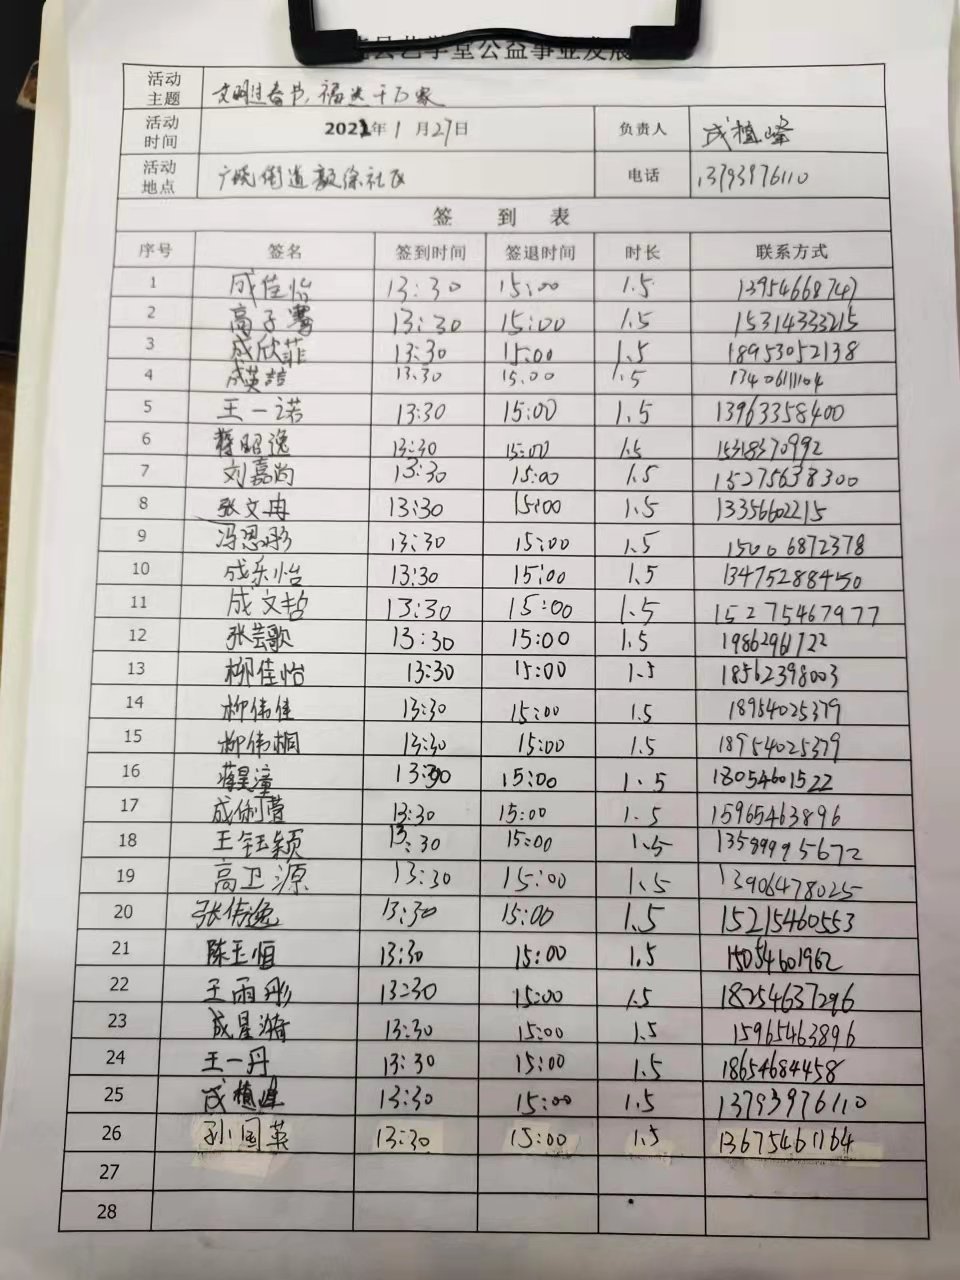 县艺学堂公益事业发展
活动主题 文明过春节,福送千万家
活动时间 2022年1月27日 负责人 成植峰
活动地点 广饶街道颜徐社区 电话 13793976110
签 到 表
序号 签名 签到时间 签退时间 时长 联系方式
1 成佳怡 13:30 15:00 1.5 13954668747
2 高子骞 13:30 15:00 1.5 15314333215
3 成欣菲 13:30 15:00 1.5 18953052138
4 成英喆 13:30 15:00 1.5 17406111104
5 王一诺 13:30 15:00 1.5 13963358400
6 蒋昭逸 13:30 15:00 1.5 15318370992
7 刘嘉尚 13:30 15:00 1.5 15275638300
8 张文冉 13:30 15:00 1.5 13356602215
9 冯思彤 13:30 15:00 1.5 15006872378
10 成乐怡 13:30 15:00 1.5 13475288450
11 成文哲 13:30 15:00 1.5 15275467977
12 张芸歌 13:30 15:00 1.5 19862961722
13 柳佳怡 13:30 15:00 1.5 18562398003
14 柳伟佳 13:30 15:00 1.5 18954025379
15 柳伟桐 13:30 15:00 1.5 18954025379
16 蒋昊潼 13:30 15:00 1.5 18054601522
17 成俐萱 13:30 15:00 1.5 15965463896
18 王钰颖 13:30 15:00 1.5 13589995672
19 高卫源 13:30 15:00 1.5 13906478025
20 张传逸 13:30 15:00 1.5 15215460553
21 陈玉恒 13:30 15:00 1.5 15054601962
22 王雨彤 13:30 15:00 1.5 18254637296
23 成星漪 13:30 15:00 1.5 15965463896
24 王一丹 13:30 15:00 1.5 18654684458
25 成植峰 13:30 15:00 1.5 13793976110
26 孙国英 13:30 15:00 1.5 13675461164
27
28